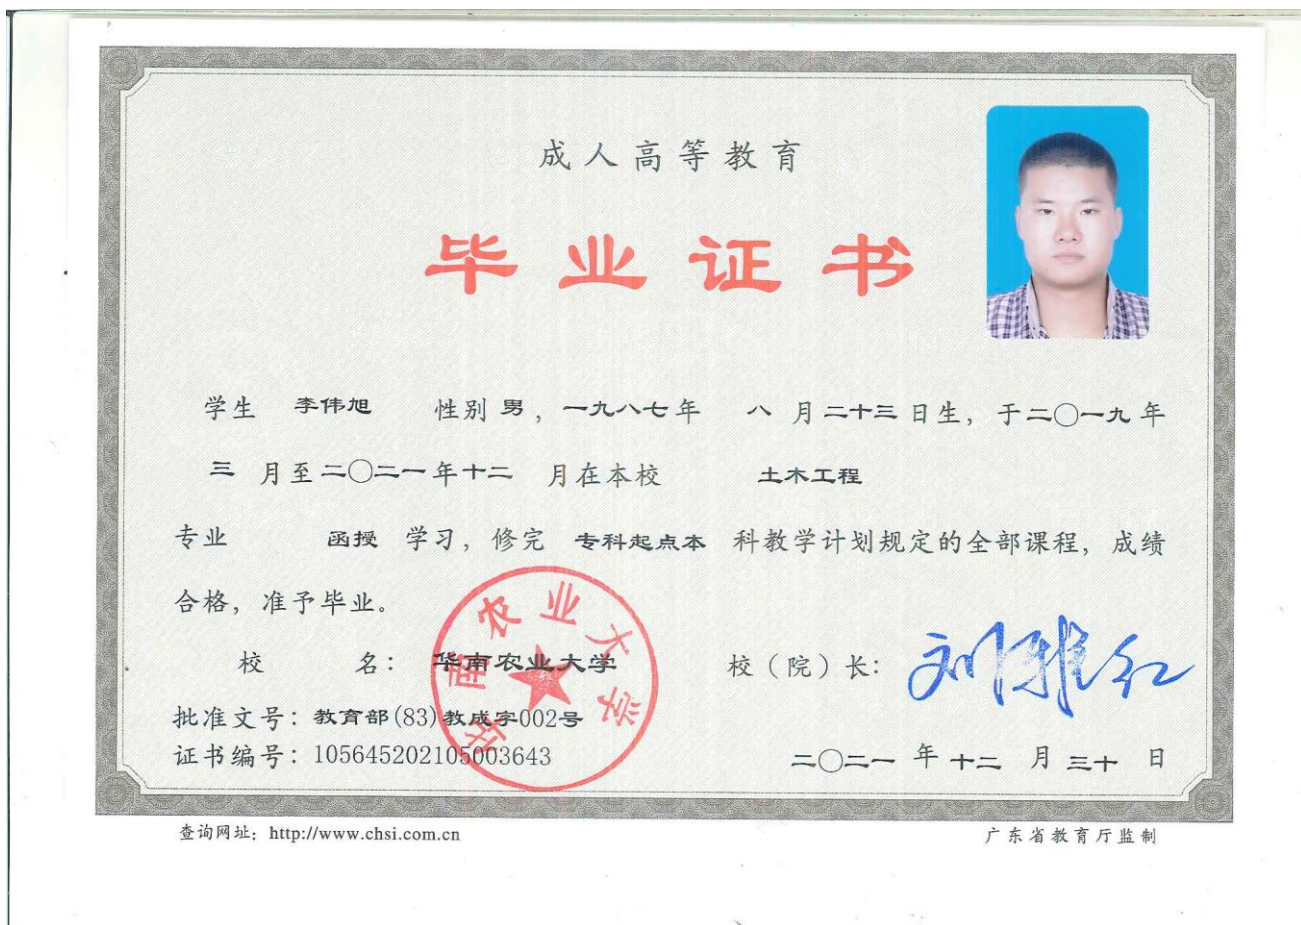 成人高等教育
毕业证书
学生 李伟旭 性别 男，一九八七年 八 月 二十三 日生，于二〇一九年
三 月至二〇二一年十二 月在本校 土木工程
专业 函授 学习，修完 专科起点本 科教学计划规定的全部课程，成绩
合格，准予毕业。
校 名：华南农业大学 校（院）长：刘雅红
华南农业大学
批准文号：教育部(83)教成字002号
证书编号：105645202105003643 二〇二一 年 十二 月 三十 日
查询网址：http://www.chsi.com.cn 广东省教育厅监制